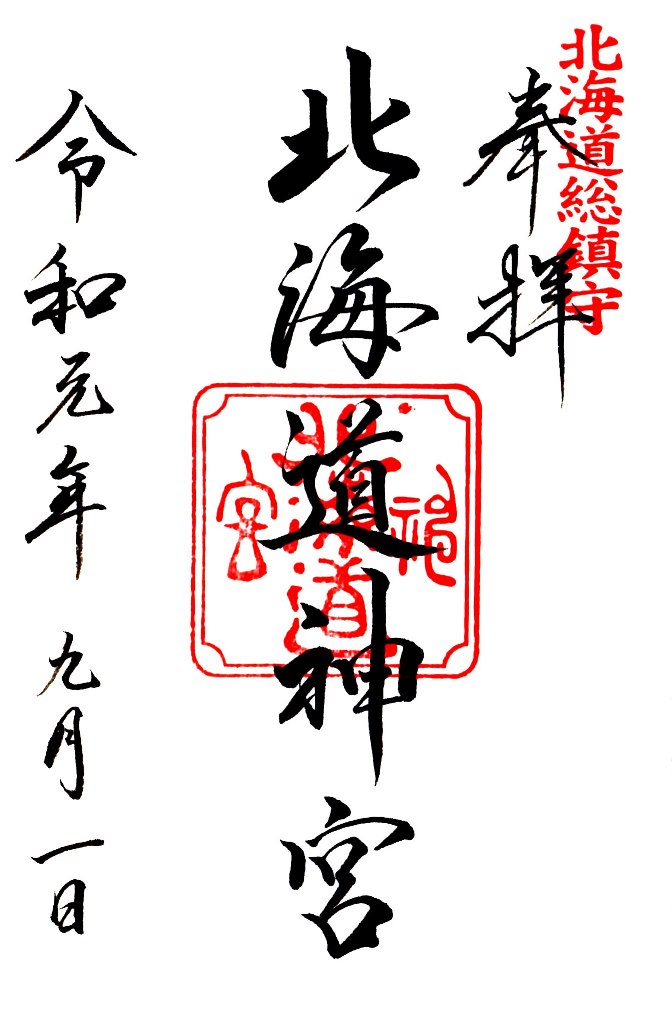 北海道総鎮守
奉拝
北海道神宮
北海道神宮
令和元年九月一日